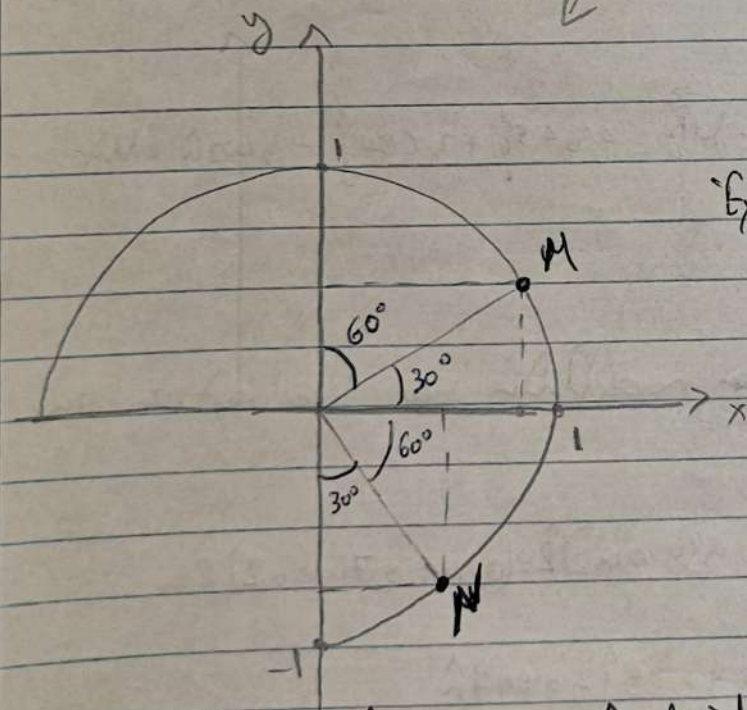 y
1
M
60°
30°
x
1
60°
30°
N
-1